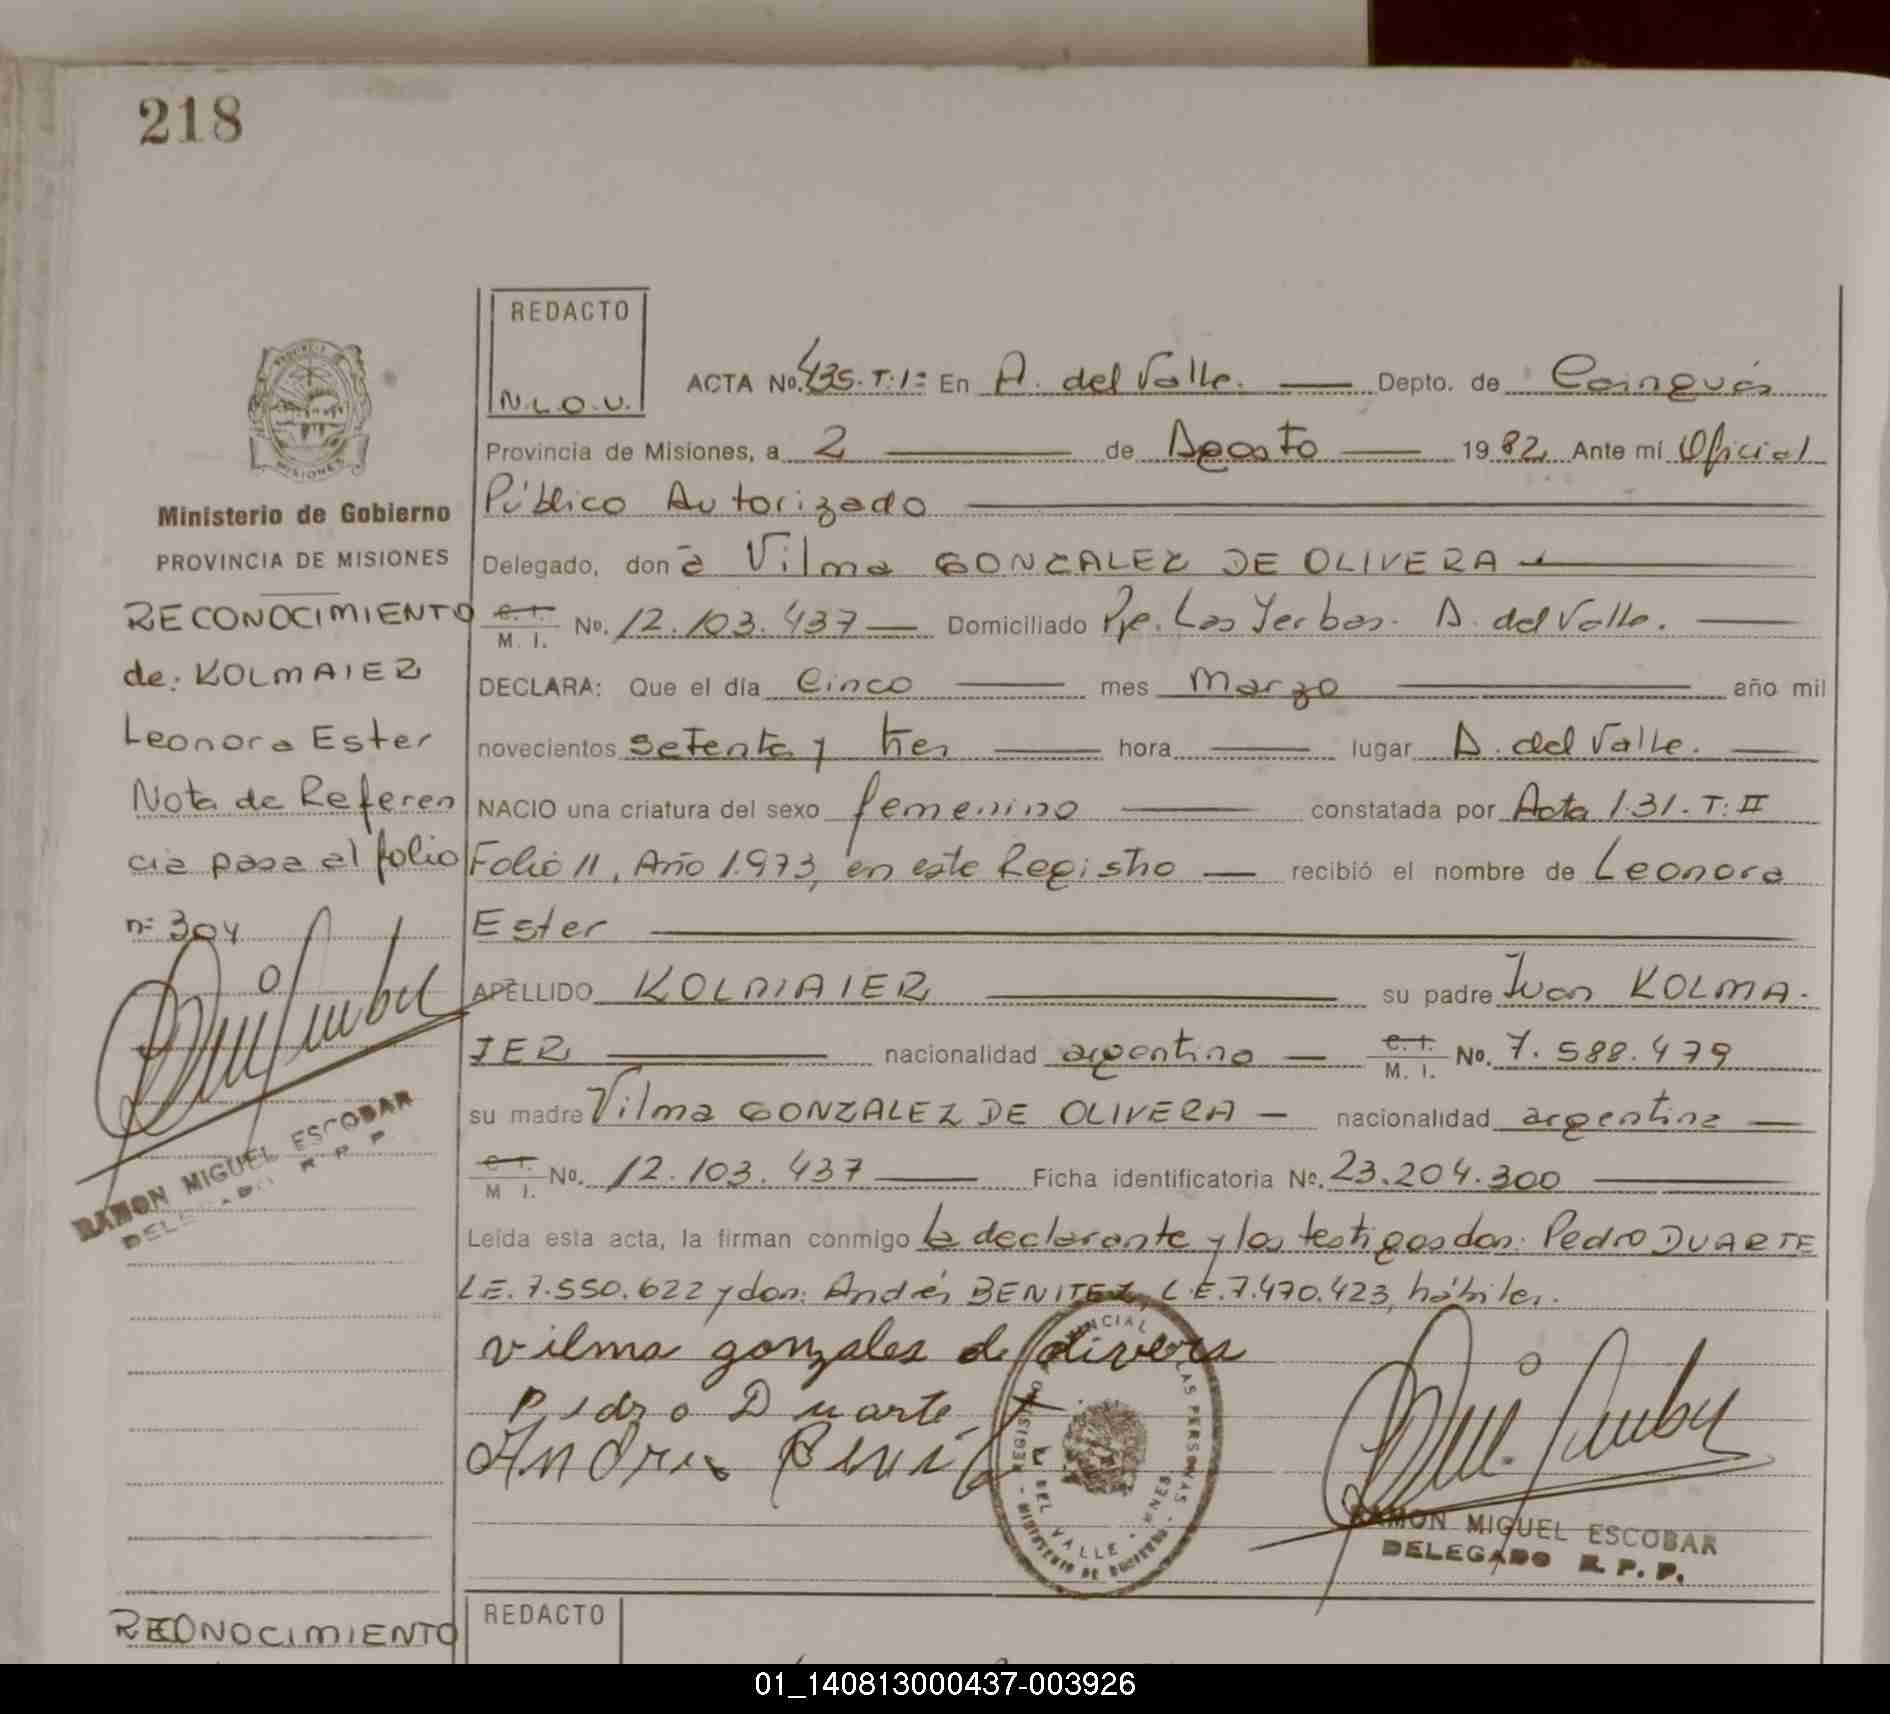 218
REDACTO
N.L.O.U.
ACTA No. 435.T:1= En A. del Valle. Depto. de Cainguás
Provincia de Misiones, a 2 de Agosto 1982 Ante mí Oficial
Público Autorizado
Delegado, doña Vilma GONZALEZ DE OLIVERA
C. I. M. I. No. 12.103.437 Domiciliado Pje. Las Yerbas. A. del Valle.
DECLARA: Que el día Cinco mes Marzo año mil
novecientos setenta y tres hora lugar A. del Valle.
NACIO una criatura del sexo femenino constatada por Acta 131.T:II
Folio 11, Año 1.973, en este Registro recibió el nombre de Leonora
Ester
APELLIDO KOLMAIER su padre Juan KOLMA-
IER nacionalidad argentino C. I. M. I. No. 7.588.479
su madre Vilma GONZALEZ DE OLIVERA nacionalidad argentina
C. I. M. I. No. 12.103.437 Ficha identificatoria No. 23.204.300
Leída esta acta, la firman conmigo la declarante y los testigos don: Pedro DUARTE
L.E. 7.550.622 y don: Andrés BENITEZ, L.E. 7.470.423, hábiles.
vilma gonzales de olivera
Pedro Duarte
RAMON MIGUEL ESCOBAR
DELEGADO R. P. P.
REGISTRO PROVINCIAL LAS PERSONAS
DEL VALLE - MNES
MINISTERIO DE GOBIERNO
PROVINCIA DE
MISIONES
Ministerio de Gobierno
PROVINCIA DE MISIONES
RECONOCIMIENTO
de: KOLMAIER
Leonora Ester
Nota de Referen
cia pasa al folio
nº 304
RAMON MIGUEL ESCOBAR
DELEGADO R. P. P.
RECONOCIMIENTO
REDACTO
01_140813000437-003926